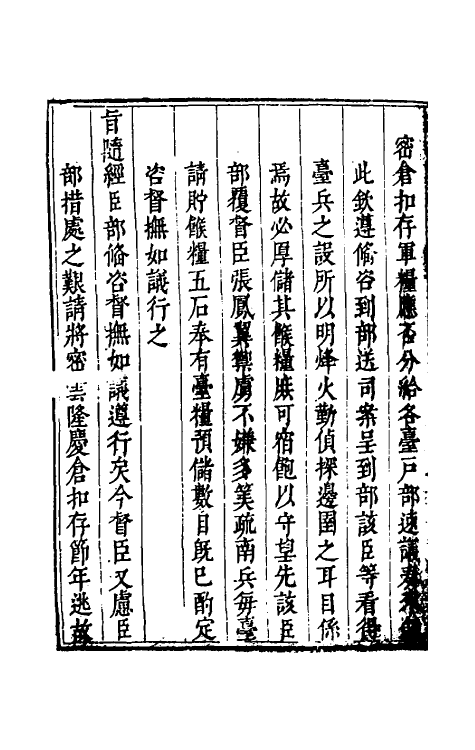 密倉扣存軍糧應否分給各臺戶部速議
此欽遵備咨到部送司案呈到部該臣等看得
臺兵之設所以明烽火勤偵探邊圉之耳目係
焉故必厚儲其餱糧庶可宿飽以守望先該臣
部覆督臣張鳳翼禦虜不嫌多筭疏南兵每臺
請貯餱糧五石奉有臺糧預儲數目旣已酌定
咨督撫如議行之
旨隨經臣部俻咨督撫如議遵行矣今督臣又慮臣
部措處之艱請將密雲隆慶倉扣存節年逃故